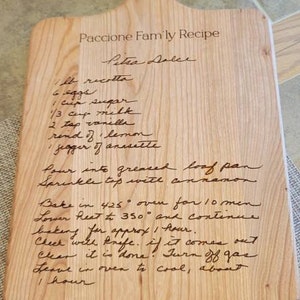 Paccione Fam'ly Recipe
Petza Dolce
1 lb ricotta
6 eggs
1 cup sugar
1/3 cup milk
2 tsp vanilla
rind of 1 lemon
1 jigger of anesette
Pour into greased loaf pan
Sprinkle top with cinnamon
Bake in 425° oven for 10 min
Lower heet to 350° and continue
baking for approx 1 hour.
Check with knife. if it comes out
clean it is done. Turn off gas
Leave in oven to cool, about
1 hour